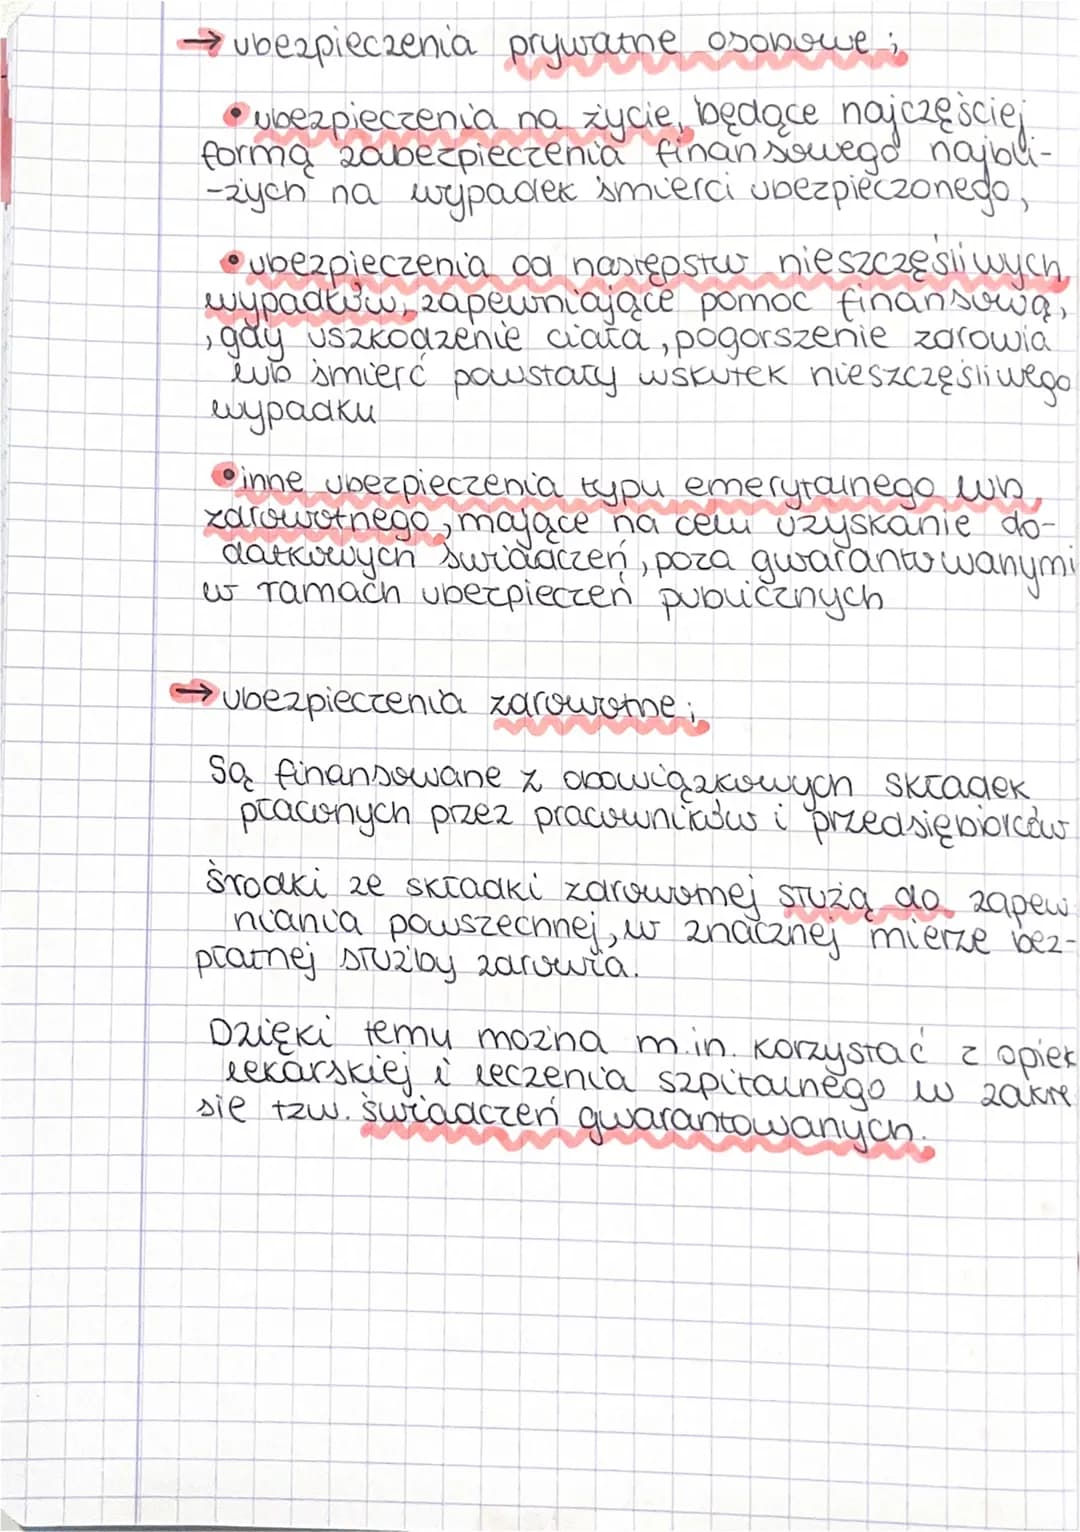 → ubezpieczenia prywatne osobowe;
• ubezpieczenia na życie, będące najczęściej
formą zabezpieczenia finansowego najbli-
-żych na wypadek śmierci ubezpieczonego,
• ubezpieczenia od następstw nieszczęśliwych
wypadków, zapewniające pomoc finansową,
, gdy uszkodzenie ciała, pogorszenie zdrowia
lub śmierć powstały wskutek nieszczęśliwego
wypadku
• inne ubezpieczenia typu emerytalnego lub
zdrowotnego, mające na celu uzyskanie do-
datkowych świadczeń, poza gwarantowanymi
w ramach ubezpieczeń publicznych
→ ubezpieczenia zdrowotne;
Są finansowane z obowiązkowych składek
płaconych przez pracowników i przedsiębiorców
Środki ze składki zdrowotnej służą do zapew
niania powszechnej, w znacznej mierze bez-
płatnej służby zdrowia.
Dzięki temu można m.in. korzystać z opiek
lekarskiej i leczenia szpitalnego w zakre
sie tzw. świadczeń gwarantowanych.